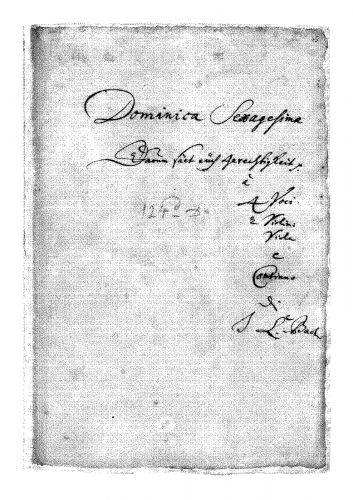 Dominica Sexagesima
Darum säet euch Gerechtigkeit
à
4 Voci
2 Violini
Viola
e
Continuo
di
J L. Bach